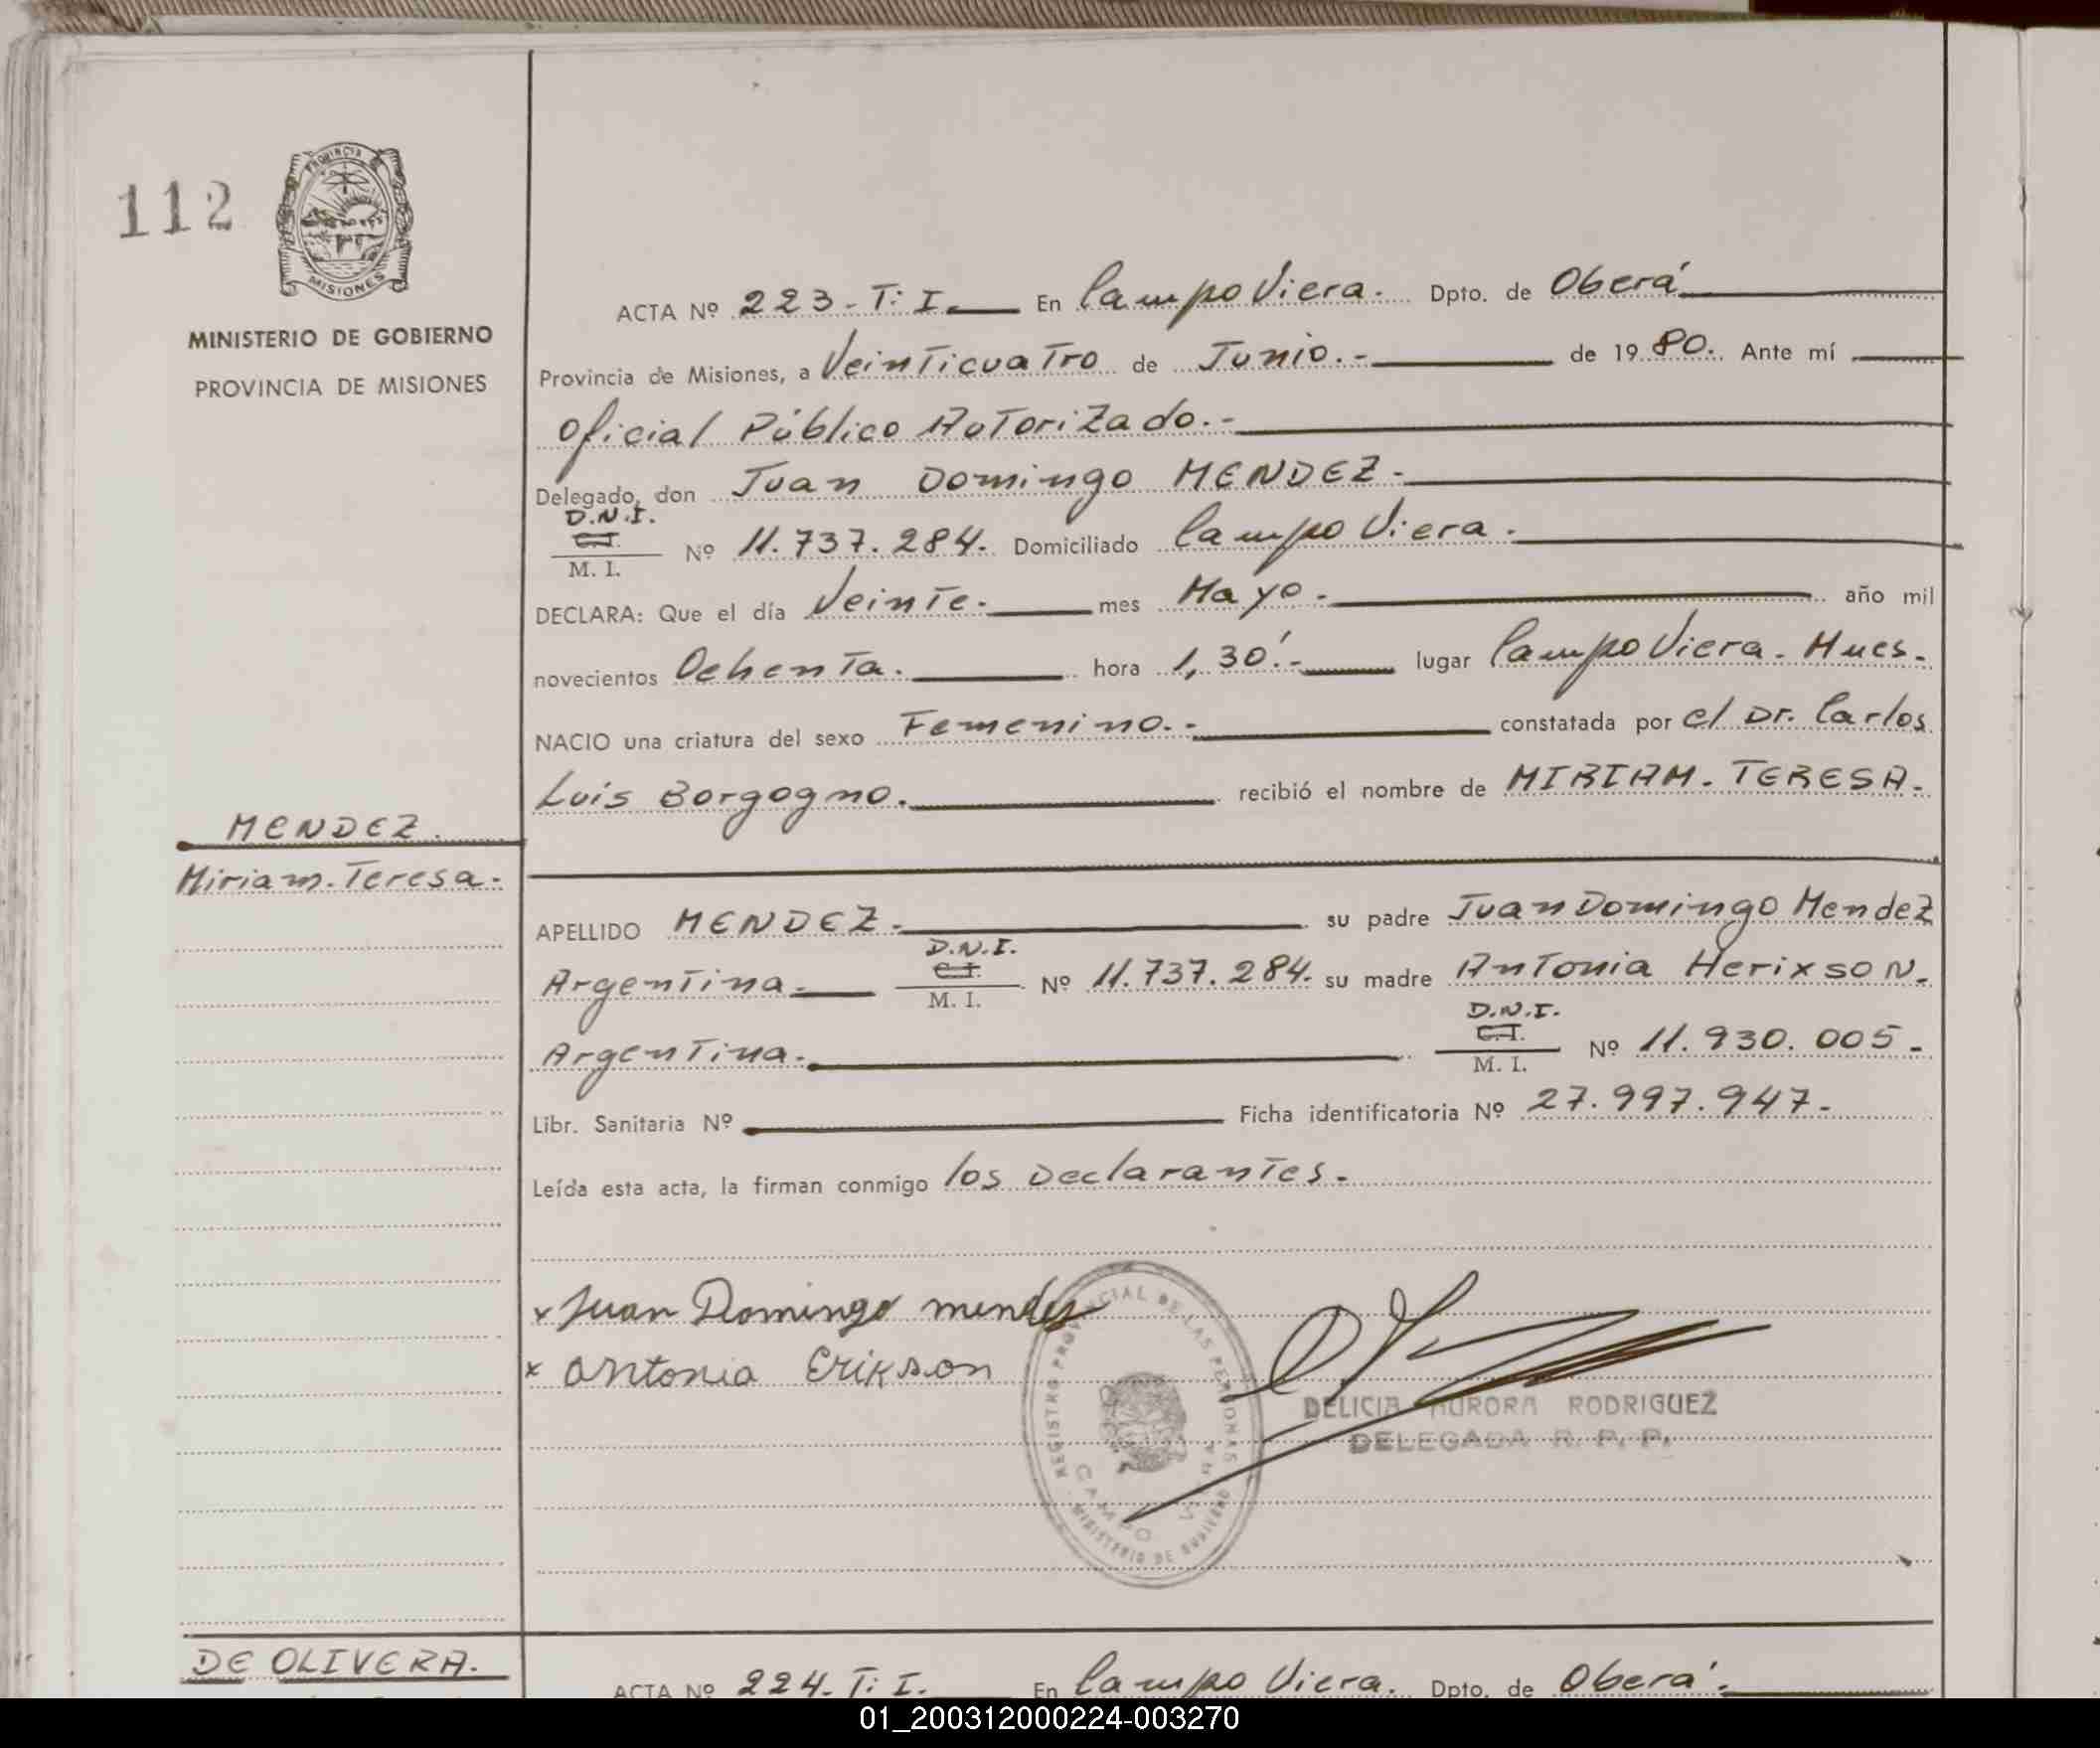 112
PROVINCIA
MISIONES
MINISTERIO DE GOBIERNO
PROVINCIA DE MISIONES
ACTA Nº 223-T: I. En Campo Viera. Dpto. de Oberá
Provincia de Misiones, a Veinticuatro de Junio.- de 1980. Ante mí
Oficial Público Autorizado.-
Delegado, don Juan Domingo MENDEZ-
D.N.I.
C.I.
M. I.
Nº 11.737.284. Domiciliado Campo Viera.
DECLARA: Que el día Veinte. mes Mayo. año mil
novecientos Ochenta. hora 1,30'.- lugar Campo Viera. Mnes.
NACIO una criatura del sexo Femenino.- constatada por el Dr. Carlos
Luis Borgogno. recibió el nombre de MIRIAM. TERESA.
MENDEZ.
Miriam. Teresa.
APELLIDO MENDEZ. su padre Juan Domingo Mendez
D.N.I.
C.I.
M. I.
Argentina. Nº 11.737.284. su madre Antonia Herixson.
D.N.I.
C.I.
M. I.
Argentina. Nº 11.930.005-
Libr. Sanitaria Nº Ficha identificatoria Nº 27.997.947-
Leída esta acta, la firman conmigo los Declarantes.
x Juan Domingo mendez
x Antonia Erikson
REGISTRO PROVINCIAL DE LAS PERSONAS
CAMPO VIERA
MINISTERIO DE GOBIERNO
DELICIA AURORA RODRIGUEZ
DELEGADA R. P. P.
DE OLIVERA.
ACTA Nº 224. T: I. En Campo Viera. Dpto. de Oberá.
01_200312000224-003270